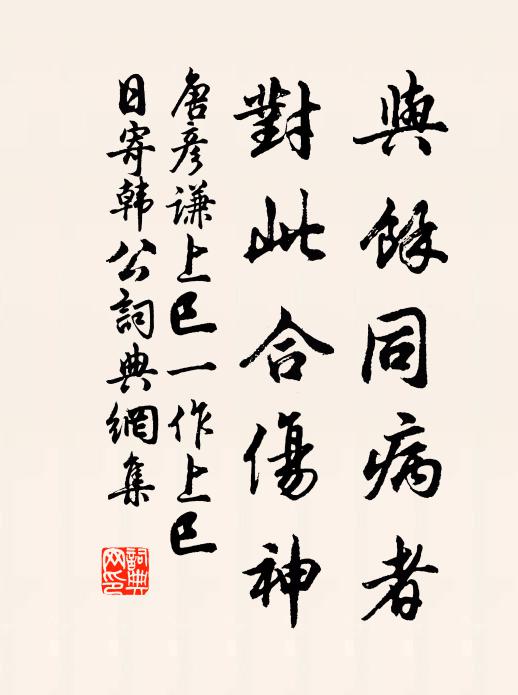 與餘同病者
對此合傷神
唐彥謙上巳一作上巳
日寄韓公詞典網集
詞典网印